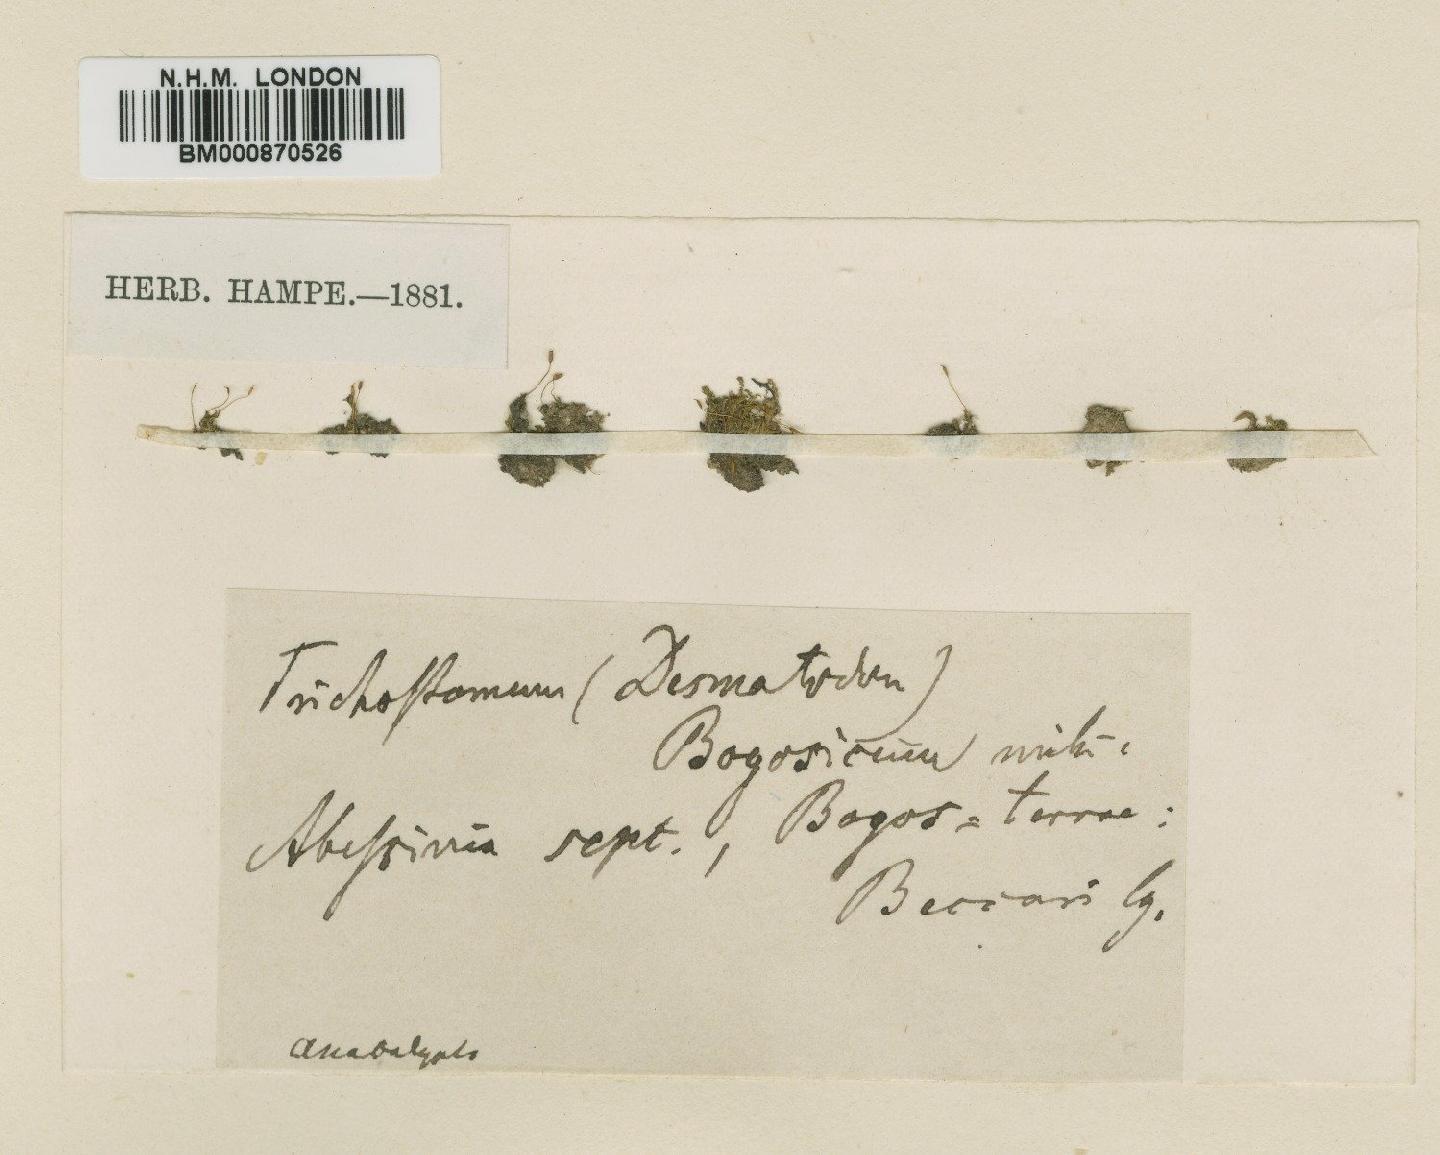 N.H.M. LONDON
BM000870526
HERB. HAMPE.—1881.
Trichostomum (Desmatodon)
Bogosicum mihi.
Abessinia sept., Bogos = terrae:
Beccari lg.
Anacalypta